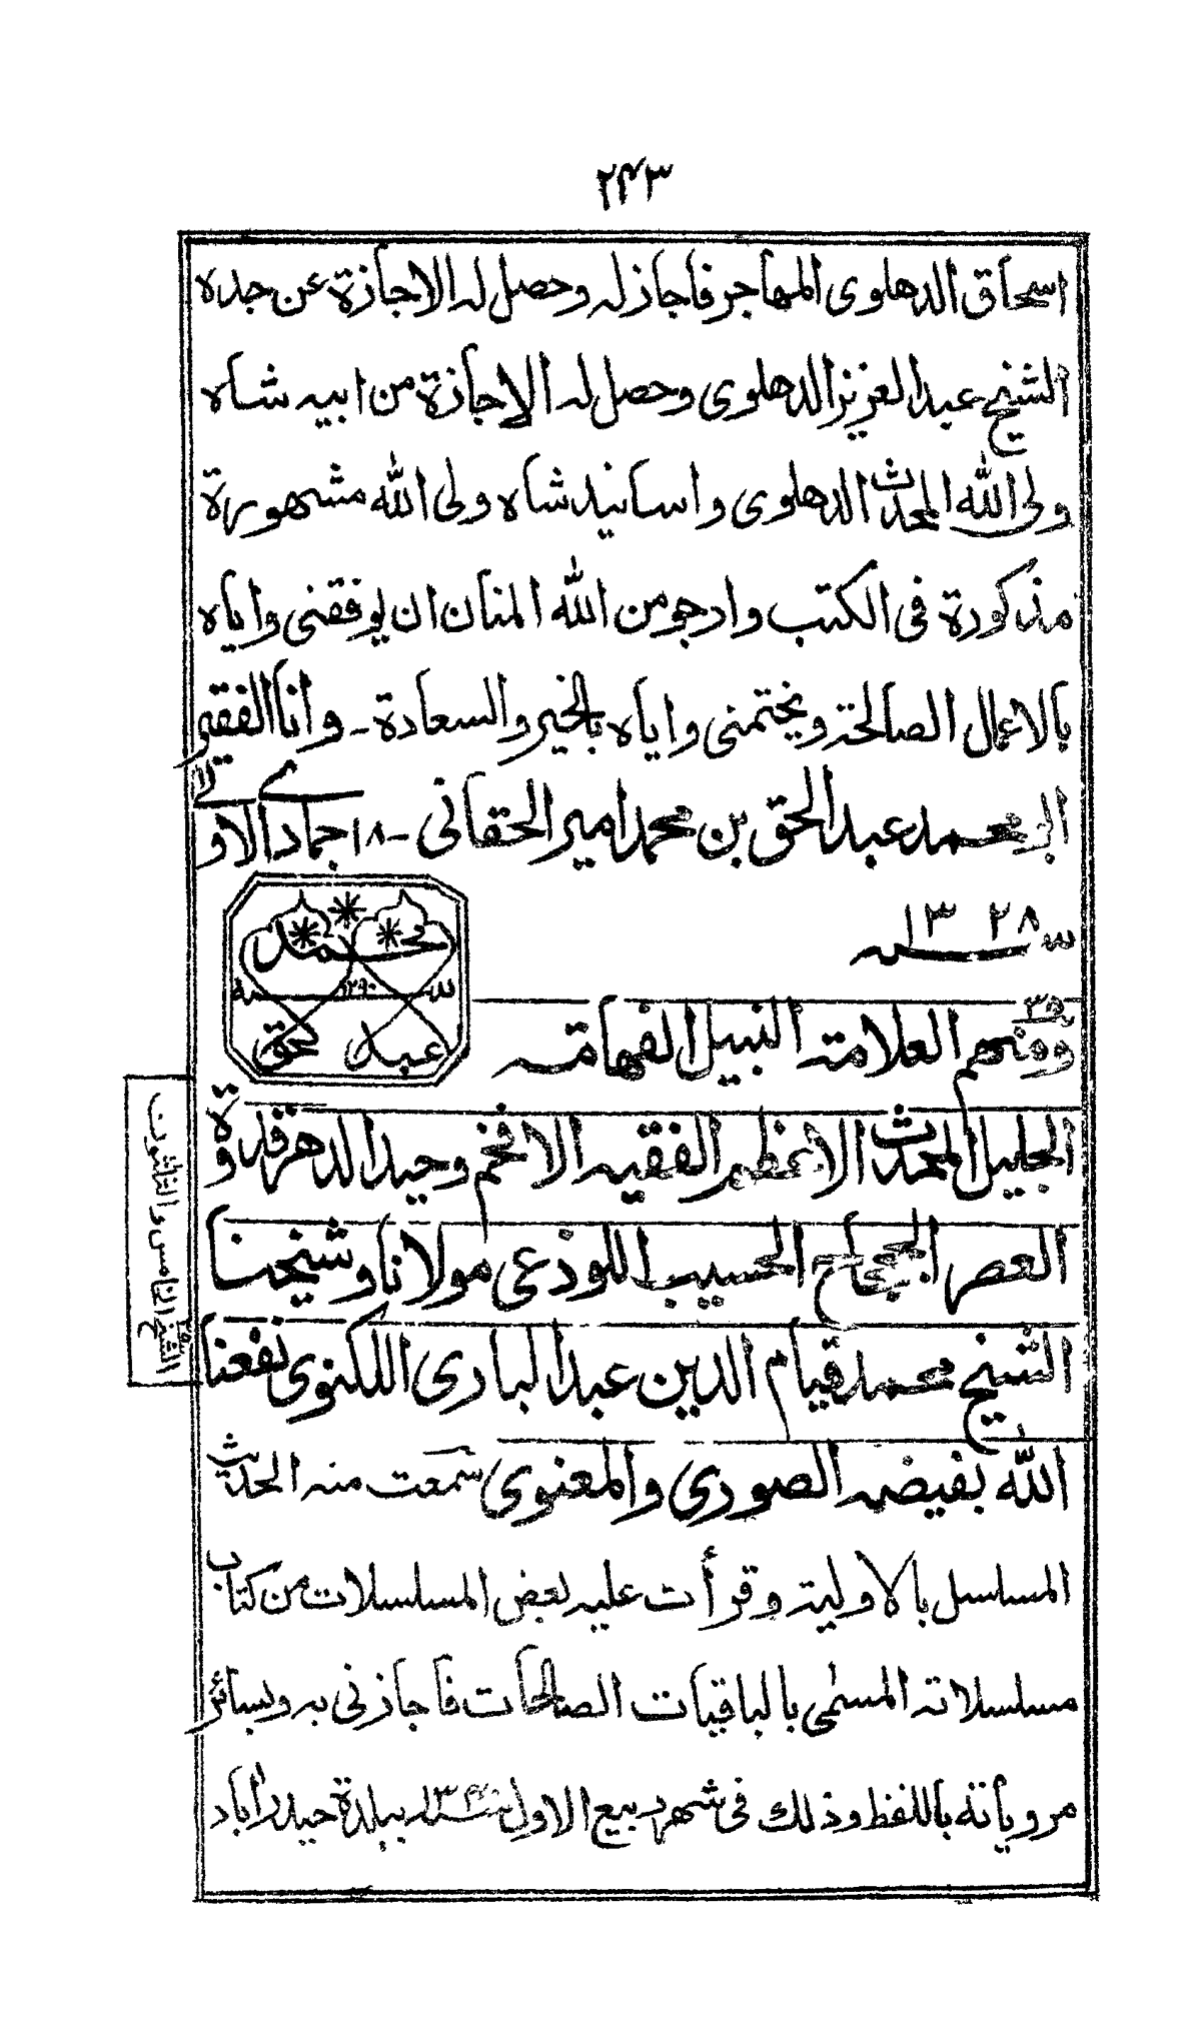 ٢٤٣
اسحاق الدهلوى المهاجر فاجاز له وحصل له الاجازة عن جده
الشيخ عبد العزيز الدهلوى وحصل له الاجازة من ابيه شاه
ولى الله المحدث الدهلوى واسانيد شاه ولى الله مشهورة
مذكورة فى الكتب وارجو من الله المنان ان يوفقنى واياه
بالاعمال الصالحة ويختمنى واياه بالخير والسعادة - وانا الفقير
الى محمد عبد الحق بن محمد امير الحقانى - ١٨ جمادى الاولى
سنه ١٣٢٨
محمد
سنه ١٢٩٠
عبد الحق
٣٥
ومنهم العلامة النبيل الفهامة
الجليل المحدث الاعظم الفقيه الافخم وحيد الدهر قدوة
العصر الجحجاح الحسيب اللوذعى مولانا وشيخنا
الشيخ محمد قيام الدين عبد البارى اللكنوى نفعنا
الله بفيضه الصورى والمعنوى سمعت منه الحديث
المسلسل بالاولية وقرأت عليه بعض المسلسلات من كتاب
مسلسلاته المسمى بالباقيات الصالحات فاجازنى به وبسائر
مروياته باللفظ وذلك فى شهر ربيع الاول ببلدة حيدراباد
الشيخ الخامس والثلاثون
٣٥